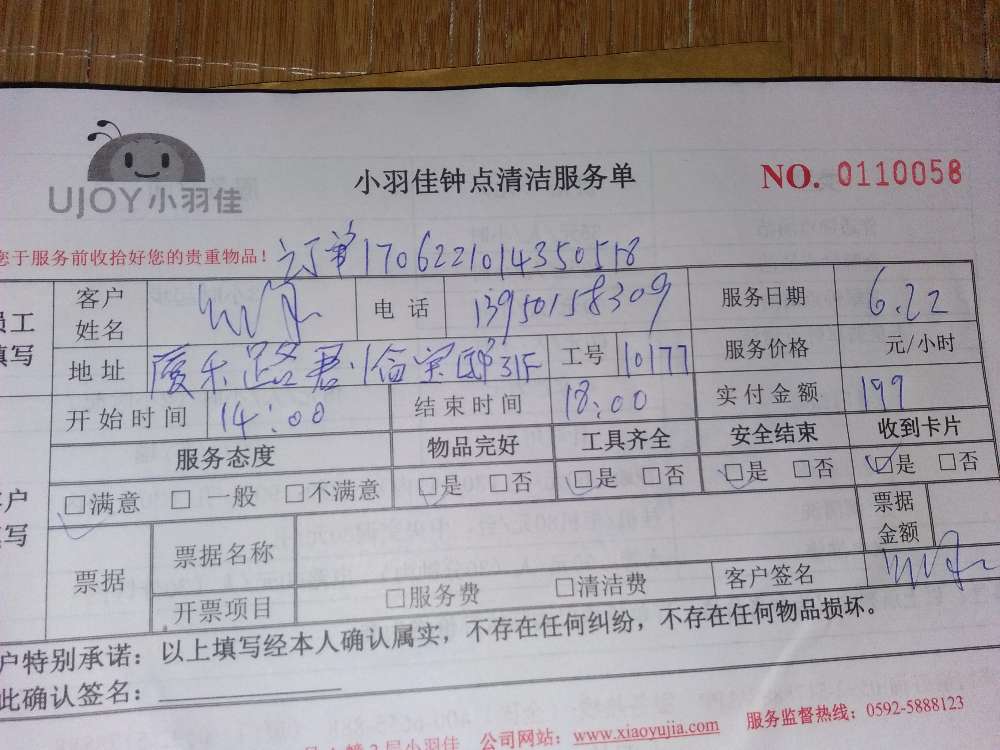 UJOY小羽佳
小羽佳钟点清洁服务单
NO. 0110058
您于服务前收拾好您的贵重物品！ 订单1706221014350518
员工填写 客户姓名 电话 13950158309 服务日期 6.22
地址 厦禾路君临宝邸31F 工号 10177 服务价格 元/小时
开始时间 14:00 结束时间 18:00 实付金额 199
服务态度 物品完好 工具齐全 安全结束 收到卡片
客户填写 □满意 □一般 □不满意 □是 □否 □是 □否 □是 □否 □是 □否
票据 票据名称 票据金额
开票项目 □服务费 □清洁费 客户签名
户特别承诺：以上填写经本人确认属实，不存在任何纠纷，不存在任何物品损坏。
此确认签名：
层小羽佳 公司网站：www.xiaoyujia.com 服务监督热线：0592-5888123